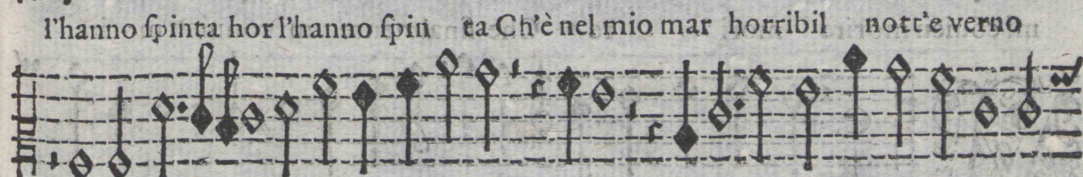 l'hanno ſpinta hor l'hanno ſpin ta Ch'è nel mio mar horribil nott'e verno